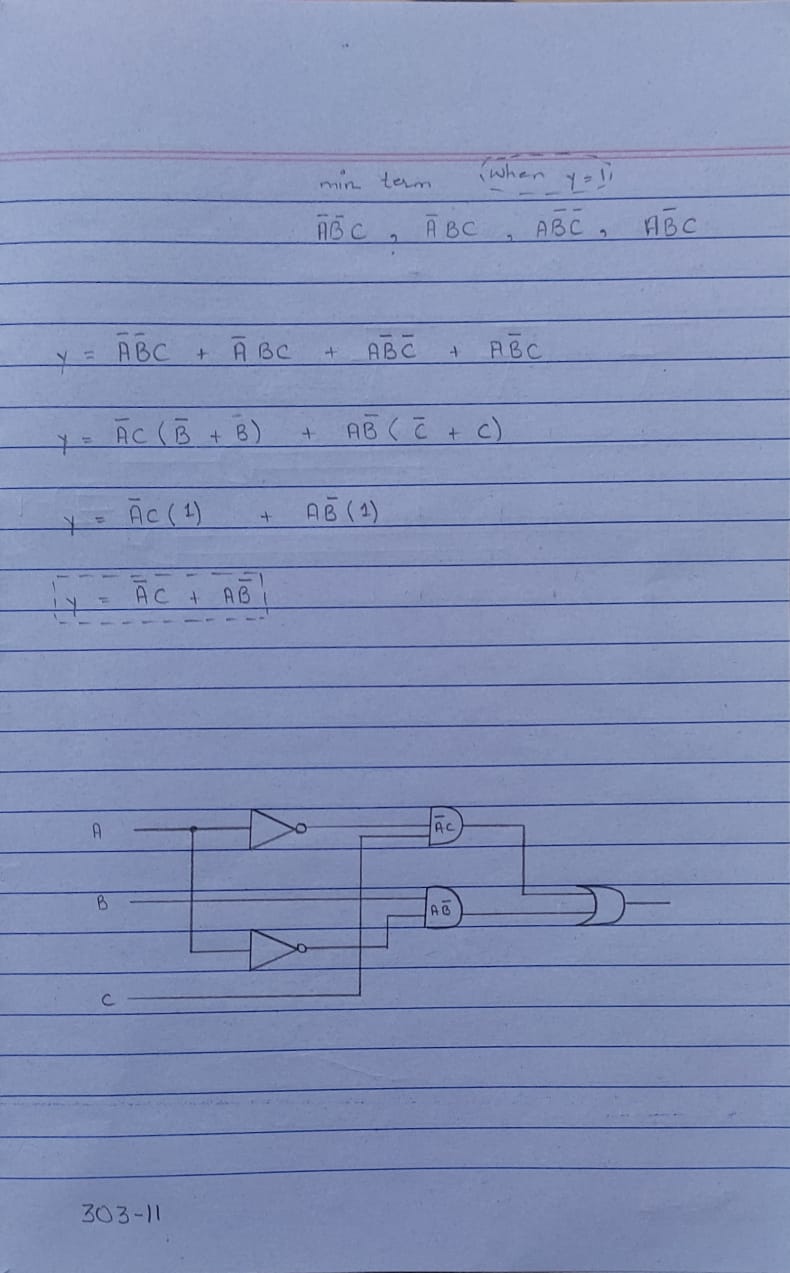 min term (when y=1)
A̅B̅C , A̅BC , AB̅C̅ , AB̅C
y = A̅B̅C + A̅BC + AB̅C̅ + AB̅C
y = A̅C(B̅ + B) + AB̅(C̅ + C)
y = A̅C(1) + AB̅(1)
y = A̅C + AB̅
A
A̅C
B
AB̅
C
303-11